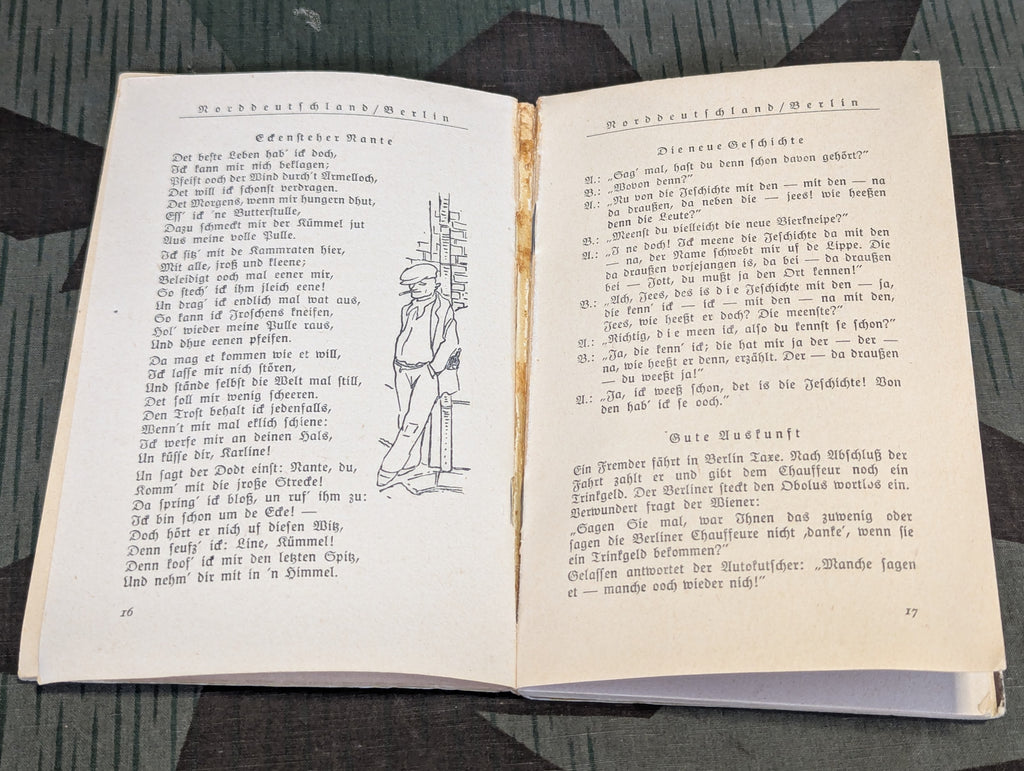 Norddeutſchland/Berlin
Eckenſteher Nante
Det beſte Leben hab' ick doch,
Ick kann mir nich beklagen;
Pfeift ooch der Wind durch't Armelloch,
Det will ick ſchonſt verdragen.
Det Morgens, wenn mir hungern dhut,
Eſſ' ick 'ne Butterſtulle,
Dazu ſchmeckt mir der Kümmel jut
Aus meine volle Pulle.
Ick ſitz' mit de Kammraten hier,
Mit alle, jroß und kleene;
Beleidigt ooch mal eener mir,
So ſtech' ick ihm jleich eene!
Un drag' ick endlich mal wat aus,
So kann ick Froſchens kneifen,
Hol' wieder meine Pulle raus,
Und dhue eenen pfeifen.
Da mag et kommen wie et will,
Ick laſſe mir nich ſtören,
Und ſtände ſelbſt die Welt mal ſtill,
Det ſoll mir wenig ſcheeren.
Den Troſt behalt ick jedenfalls,
Wenn't mir mal eklich ſchiene:
Ick werfe mir an deinen Hals,
Un küſſe dir, Karline!
Un ſagt der Dodt einſt: Nante, du,
Komm' mit die jroße Strecke!
Da ſpring' ick bloß, un ruf' ihm zu:
Ick bin ſchon um de Ecke! —
Doch hört er nich uf dieſen Witz,
Denn ſeufz' ick: Line, Kümmel!
Denn koof' ick mir den letzten Spitz,
Und nehm' dir mit in 'n Himmel.
16
Norddeutſchland/Berlin
Die neue Geſchichte
A.: „Sag' mal, haſt du denn ſchon davon gehört?"
B.: „Wovon denn?"
A.: „Nu von die Jeſchichte mit den — mit den — na
da draußen, da neben die — jees! wie heeßen
denn die Leute?"
B.: „Meenſt du vielleicht die neue Bierkneipe?"
A.: „I ne doch! Ick meene die Jeſchichte da mit den
— na, der Name ſchwebt mir uf de Lippe. Die
da draußen vorjefangen is, da bei — da draußen
bei — Jott, du mußt ja den Ort kennen!"
B.: „Ach, Jees, des is die Jeſchichte mit den — ja,
die kenn' ick — ick — mit den — na mit den,
Jees, wie heeßt er doch? Die meenſte?"
A.: „Richtig, die meen ick, alſo du kennſt ſe ſchon?"
B.: „Ja, die kenn' ick; die hat mir ja der — der —
na, wie heeßt er denn, erzählt. Der — da draußen
— du weeßt ja!"
A.: „Ja, ick weeß ſchon, det is die Jeſchichte! Von
den hab' ick ſe ooch."
Gute Auskunft
Ein Fremder fährt in Berlin Taxe. Nach Abſchluß der
Fahrt zahlt er und gibt dem Chauffeur noch ein
Trinkgeld. Der Berliner ſteckt den Obolus wortlos ein.
Verwundert fragt der Wiener:
„Sagen Sie mal, war Ihnen das zuwenig oder
ſagen die Berliner Chauffeure nicht ‚danke', wenn ſie
ein Trinkgeld bekommen?"
Gelaſſen antwortet der Autokutſcher: „Manche ſagen
et — manche ooch wieder nich!"
17